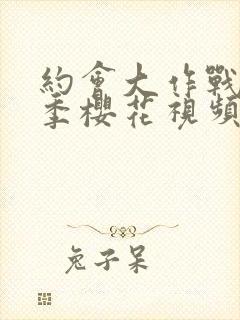 約會大作戰
季櫻花視頻
兔子呆